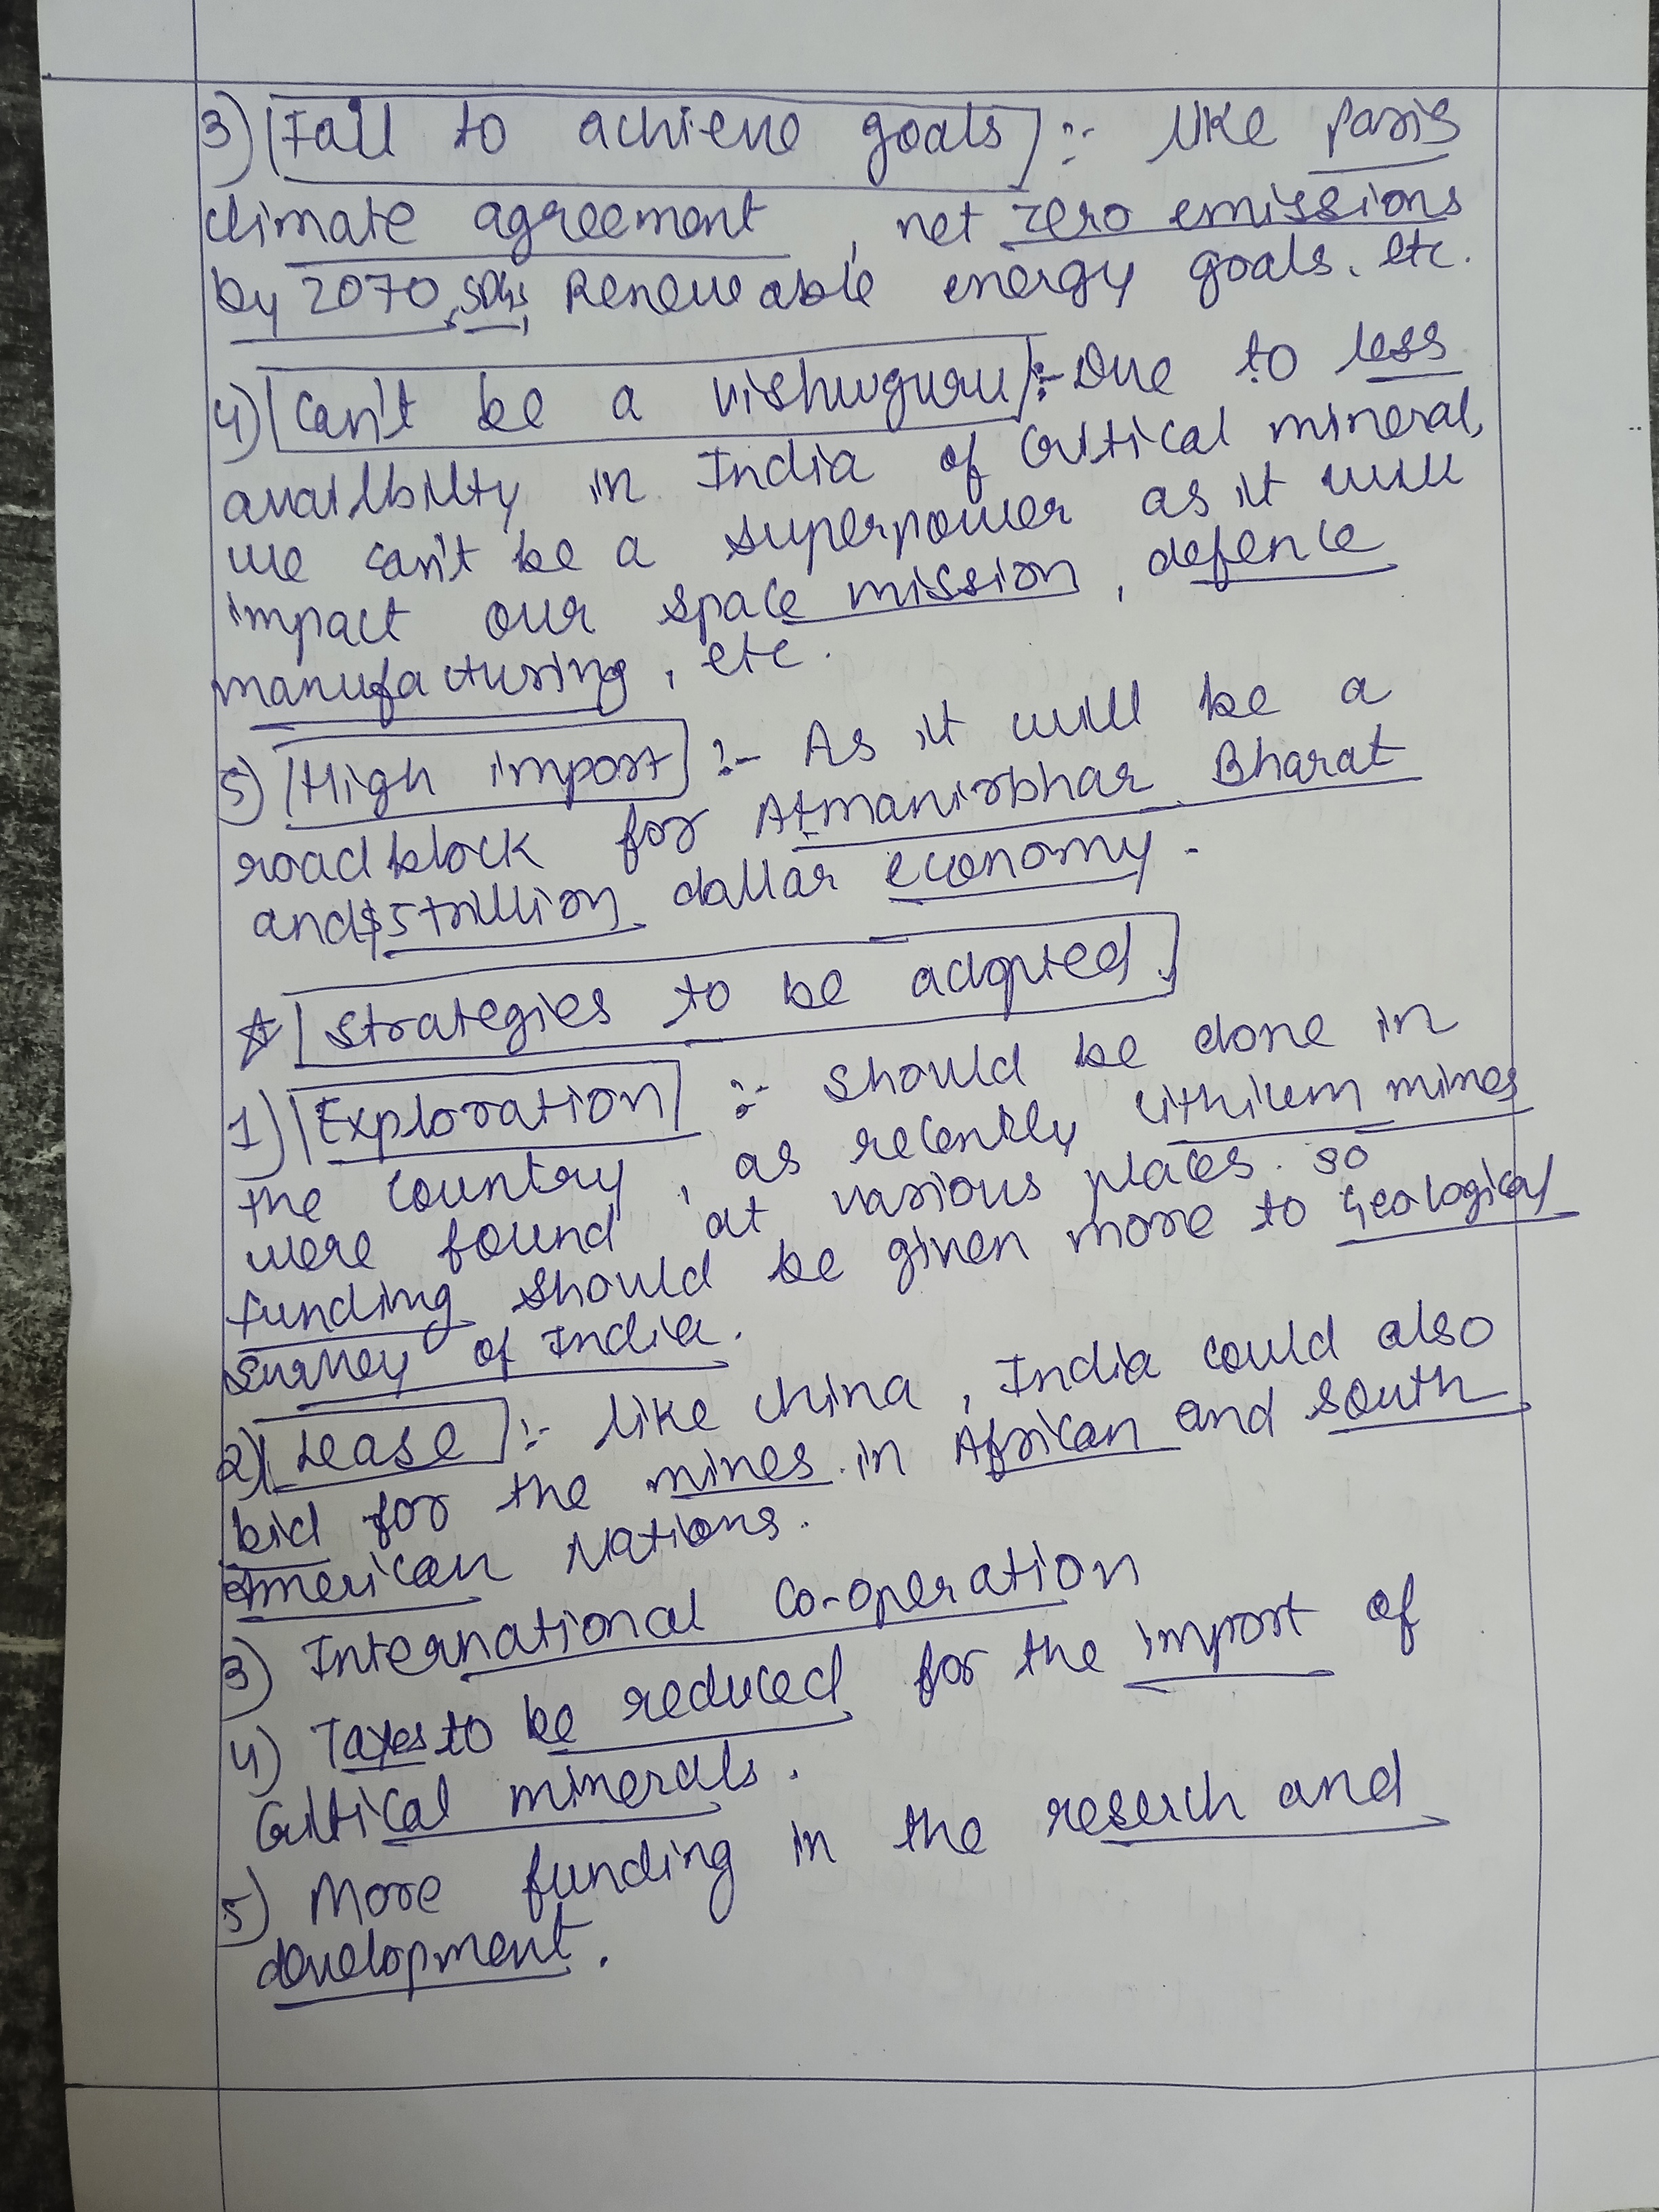 3) Fail to achieve goals :- like paris
climate agreement, net zero emissions
by 2070, SDGs, Reneweable energy goals. etc.
4) Can't be a vishwguru :- Due to less
availbilty in India of Critical mineral,
we can't be a superpower as it will
impact our space mission, defence
manufacturing, etc.
5) High import :- As it will be a
roadblock for Atmanirbhar Bharat
and $5 trillion dollar economy.
☆ Strategies to be adopted
1) Exploration :- should be done in
the country, as recently lithium mines
were found at various places. so
funding should be given more to Geological
survey of India.
2) Lease :- like china, India could also
bid for the mines in African and south
American Nations.
3) International Co-operation
4) Taxes to be reduced for the import of
Critical minerals.
5) More funding in the reserch and
development.